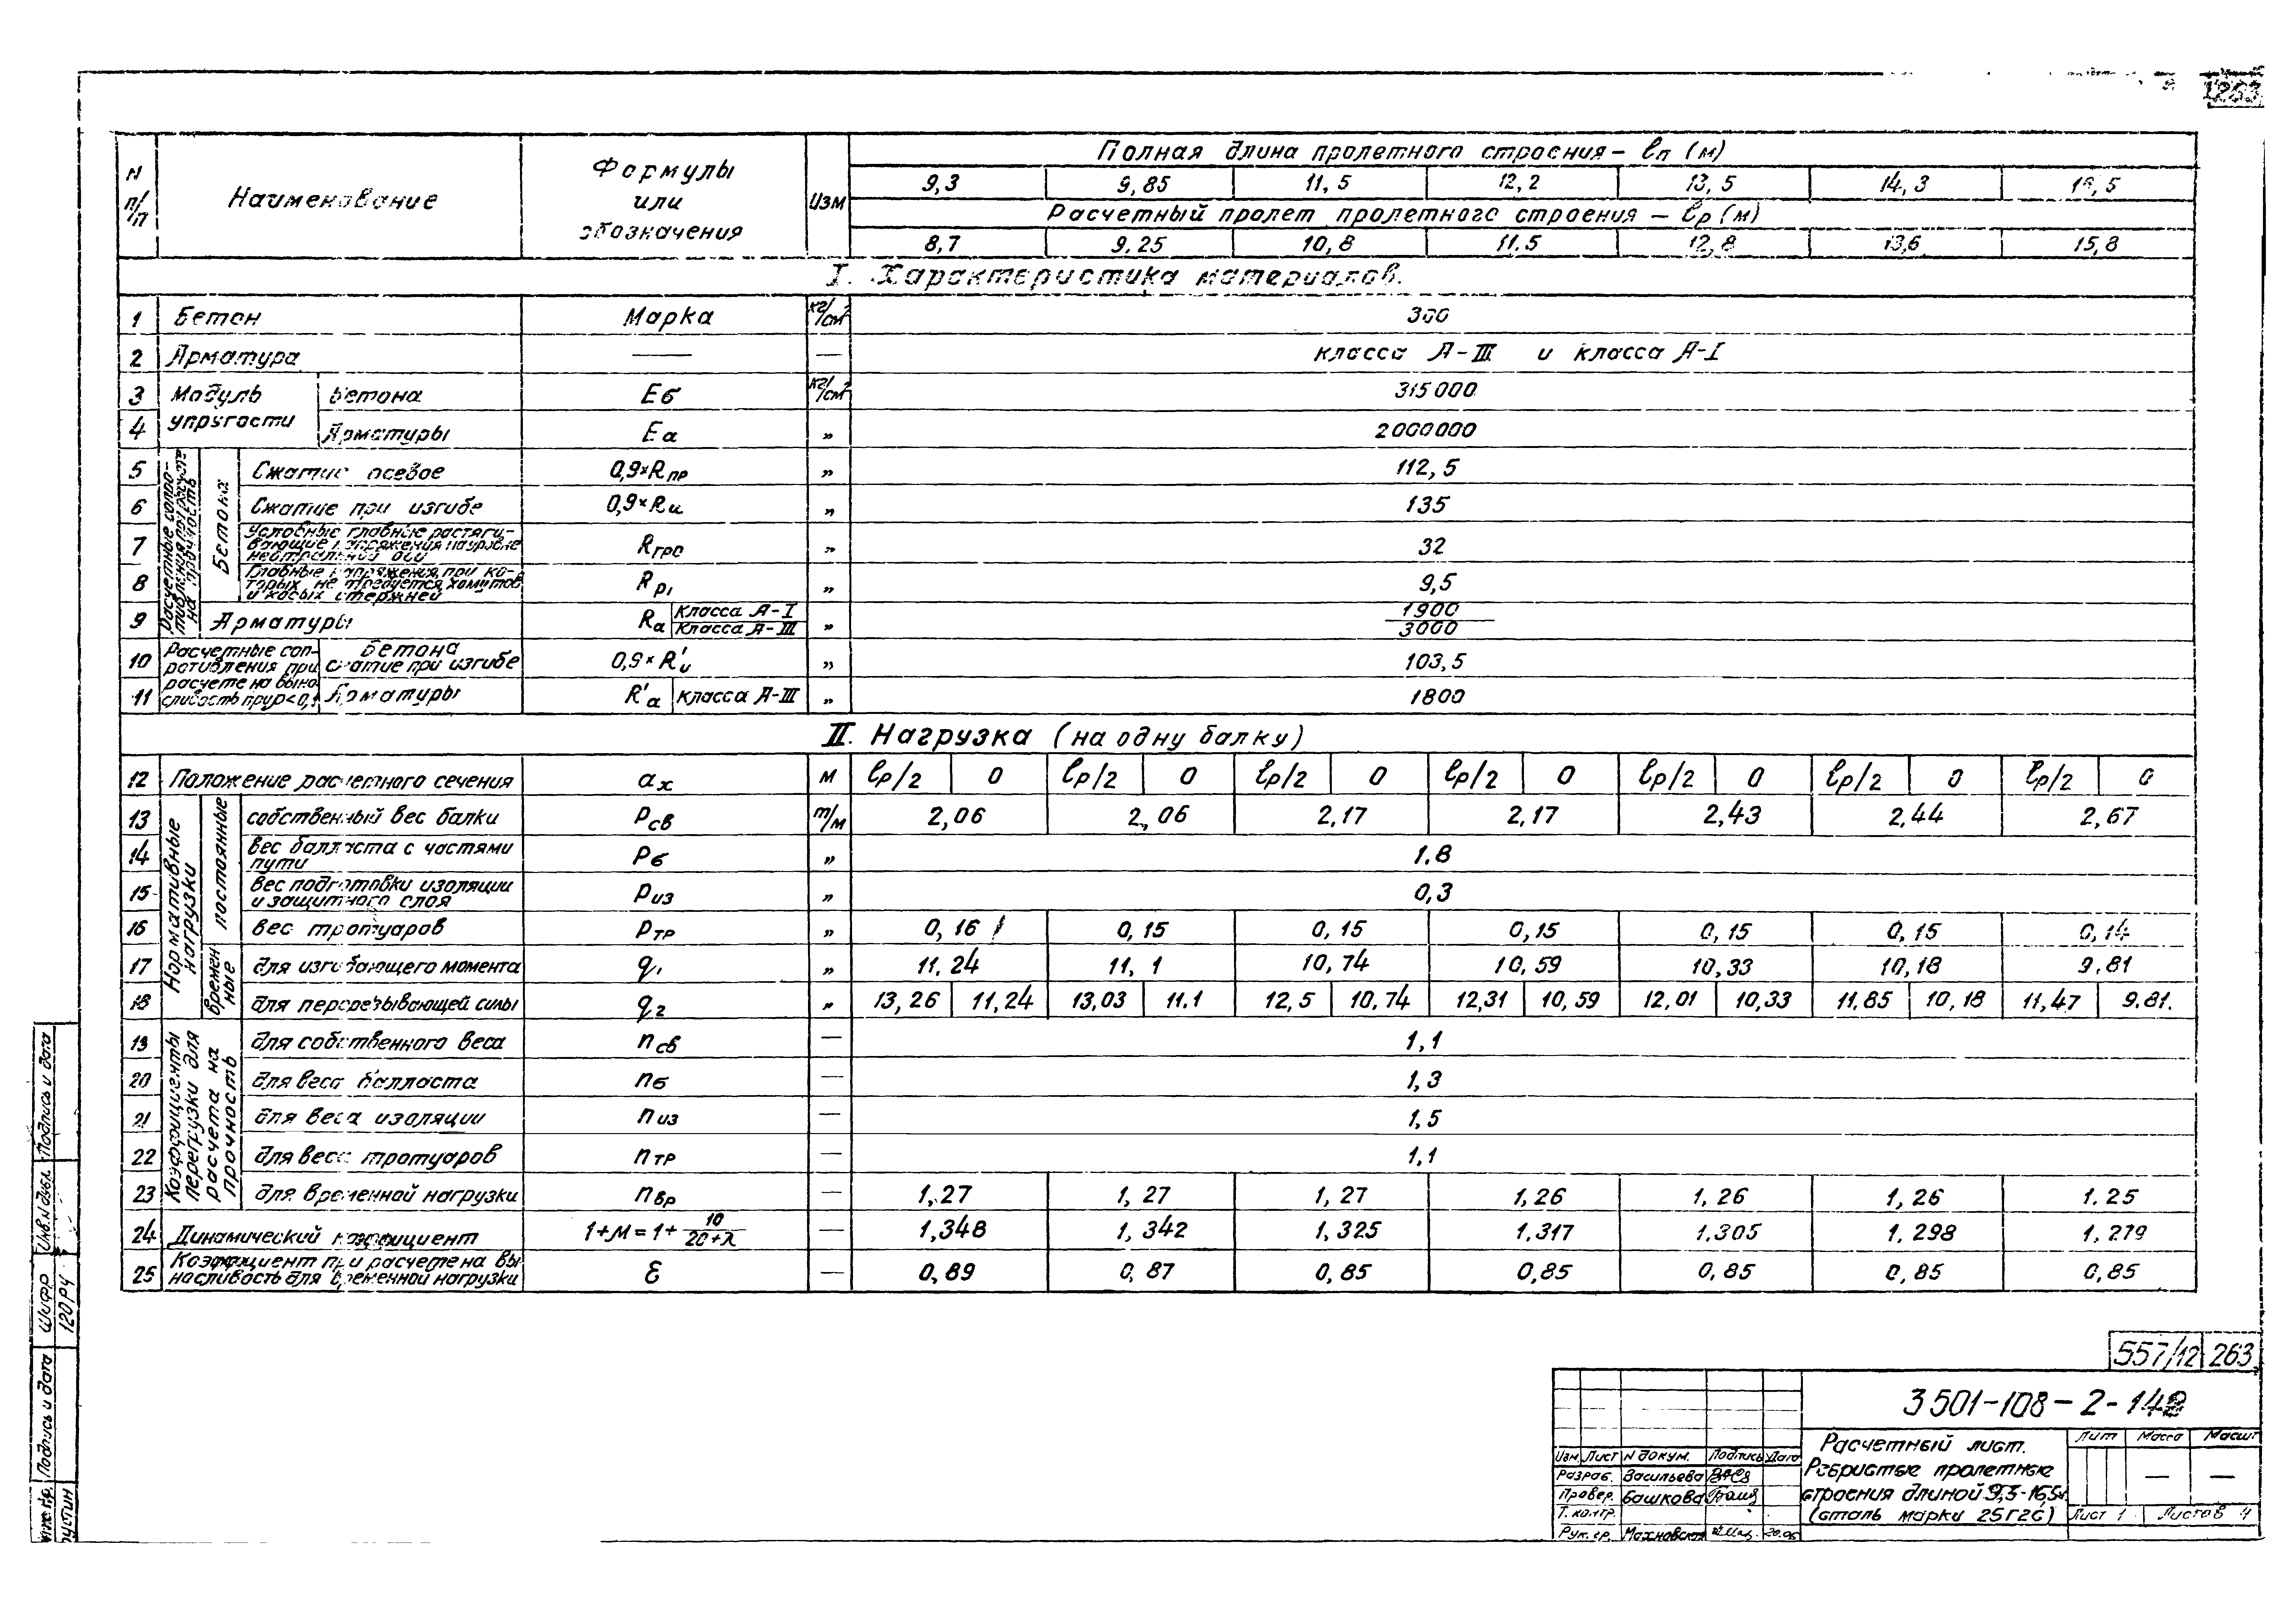 1263
N п/п Наименование Формулы или обозначения Изм Полная длина пролетного строения – ℓп (м)
9,3 9,85 11,5 12,2 13,5 14,3 16,5
Расчетный пролет пролетного строения – ℓр (м)
8,7 9.25 10,8 11.5 12,8 13,6 15,8
I. Характеристика материалов.
1 Бетон Марка кг/см² 300
2 Арматура — — класса А-III и класса А-I
Модуль упругости
3 Бетона Eб кг/см² 315000
4 Арматуры Eа " 2000000
Расчетные сопротивления при расчете на прочность
Бетона
5 Сжатие осевое 0,9×Rпр " 112,5
6 Сжатие при изгибе 0,9×Rи " 135
7 Условные главные растягивающие напряжения на уровне нейтральной оси Rгро " 32
8 Главные напряжения, при которых не требуется хомутов и косых стержней Rр₁ " 9,5
9 Арматуры Rа класса А-I класса А-III " 1900 3000
Расчетные сопротивления при расчете на выносливость при ρ<0,1
10 Бетона сжатие при изгибе 0,9×R'и " 103,5
11 Арматуры R'а класса А-III " 1800
II. Нагрузка (на одну балку)
12 Положение расчетного сечения aх м ℓр/2 0 ℓр/2 0 ℓр/2 0 ℓр/2 0 ℓр/2 0 ℓр/2 0 ℓр/2 0
Нормативные нагрузки
постоянные
13 собственный вес балки Pсв т/м 2,06 2,06 2,17 2,17 2,43 2,44 2,67
14 вес балласта с частями пути Pб " 1.8
15 вес подготовки изоляции и защитного слоя Pиз " 0,3
16 вес тротуаров Pтр " 0,16 0,15 0,15 0,15 0,15 0,15 0,14
временные
17 для изгибающего момента q₁ " 11,24 11,1 10,74 10,59 10,33 10,18 9.81
18 для перерезывающей силы q₂ " 13,26 11,24 13,03 11.1 12,5 10,74 12,31 10,59 12,01 10,33 11,85 10,18 11,47 9.81.
Коэффициенты перегрузки для расчета на прочность
19 для собственного веса nсв — 1,1
20 для веса балласта nб — 1,3
21 для веса изоляции nиз — 1,5
22 для веса тротуаров nтр — 1,1
23 для временной нагрузки nвр — 1,27 1,27 1,27 1,26 1,26 1,26 1.25
24 Динамический коэффициент 1+М=1+10/20+λ — 1,348 1,342 1,325 1.317 1.305 1,298 1,279
25 Коэффициент при расчете на выносливость для временной нагрузки ε — 0,89 0,87 0,85 0,85 0,85 0,85 0,85
Подпись и дата
Инв.N дубл.
Шифр 120РЧ
Подпись и дата
557/12 263
3 501-108-2-142
Изм. Лист N докум. Подпись Дата
Разраб. Васильева
Провер. Башкова
Т. контр.
Рук. гр. Махновская
Расчетный лист.
Ребристые пролетные
строения длиной 9,3-16,5м.
(сталь марки 25Г2С)
Лит Масса Масшт
— —
Лист 1 Листов 4